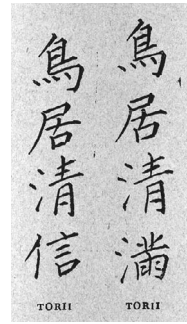 鳥居清満
TORII
鳥居清信
TORII